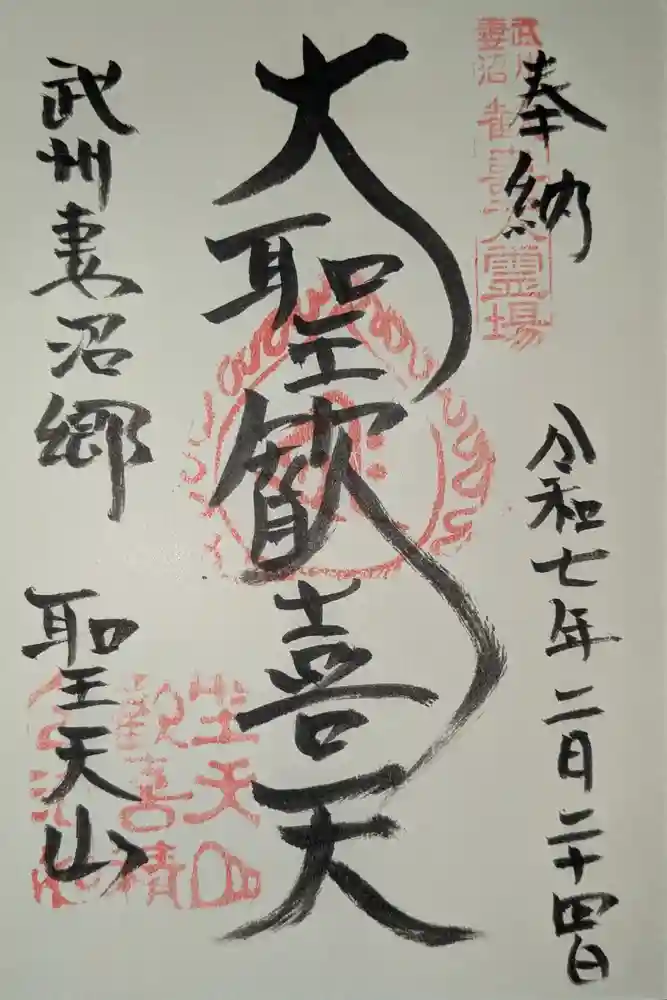 奉納
令和七年二月二十四日
大聖歓喜天
武州妻沼郷
聖天山
武州
妻沼
歓喜天霊場
聖天山